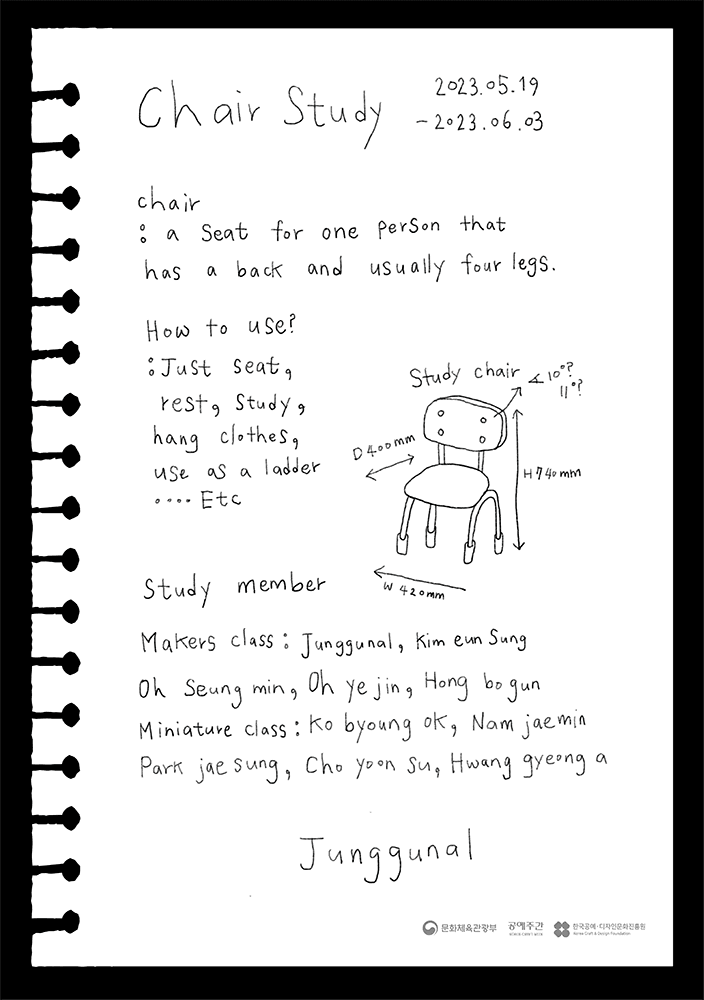 Chair Study
2023.05.19
- 2023.06.03
chair
: a seat for one person that
has a back and usually four legs.
How to use?
: Just seat,
rest, study,
hang clothes,
use as a ladder
.... Etc
Study chair
∡ 10°?
11°?
D 400mm
H 740mm
W 420mm
Study member
Makers class : Junggunal, Kim eun Sung
Oh Seung min, Oh ye jin, Hong bo gun
Miniature class : Ko byoung ok, Nam jae min
Park jae sung, Cho yoon su, Hwang gyeong a
Junggunal
문화체육관광부
공예주간
한국공예·디자인문화진흥원
Korea Craft & Design Foundation